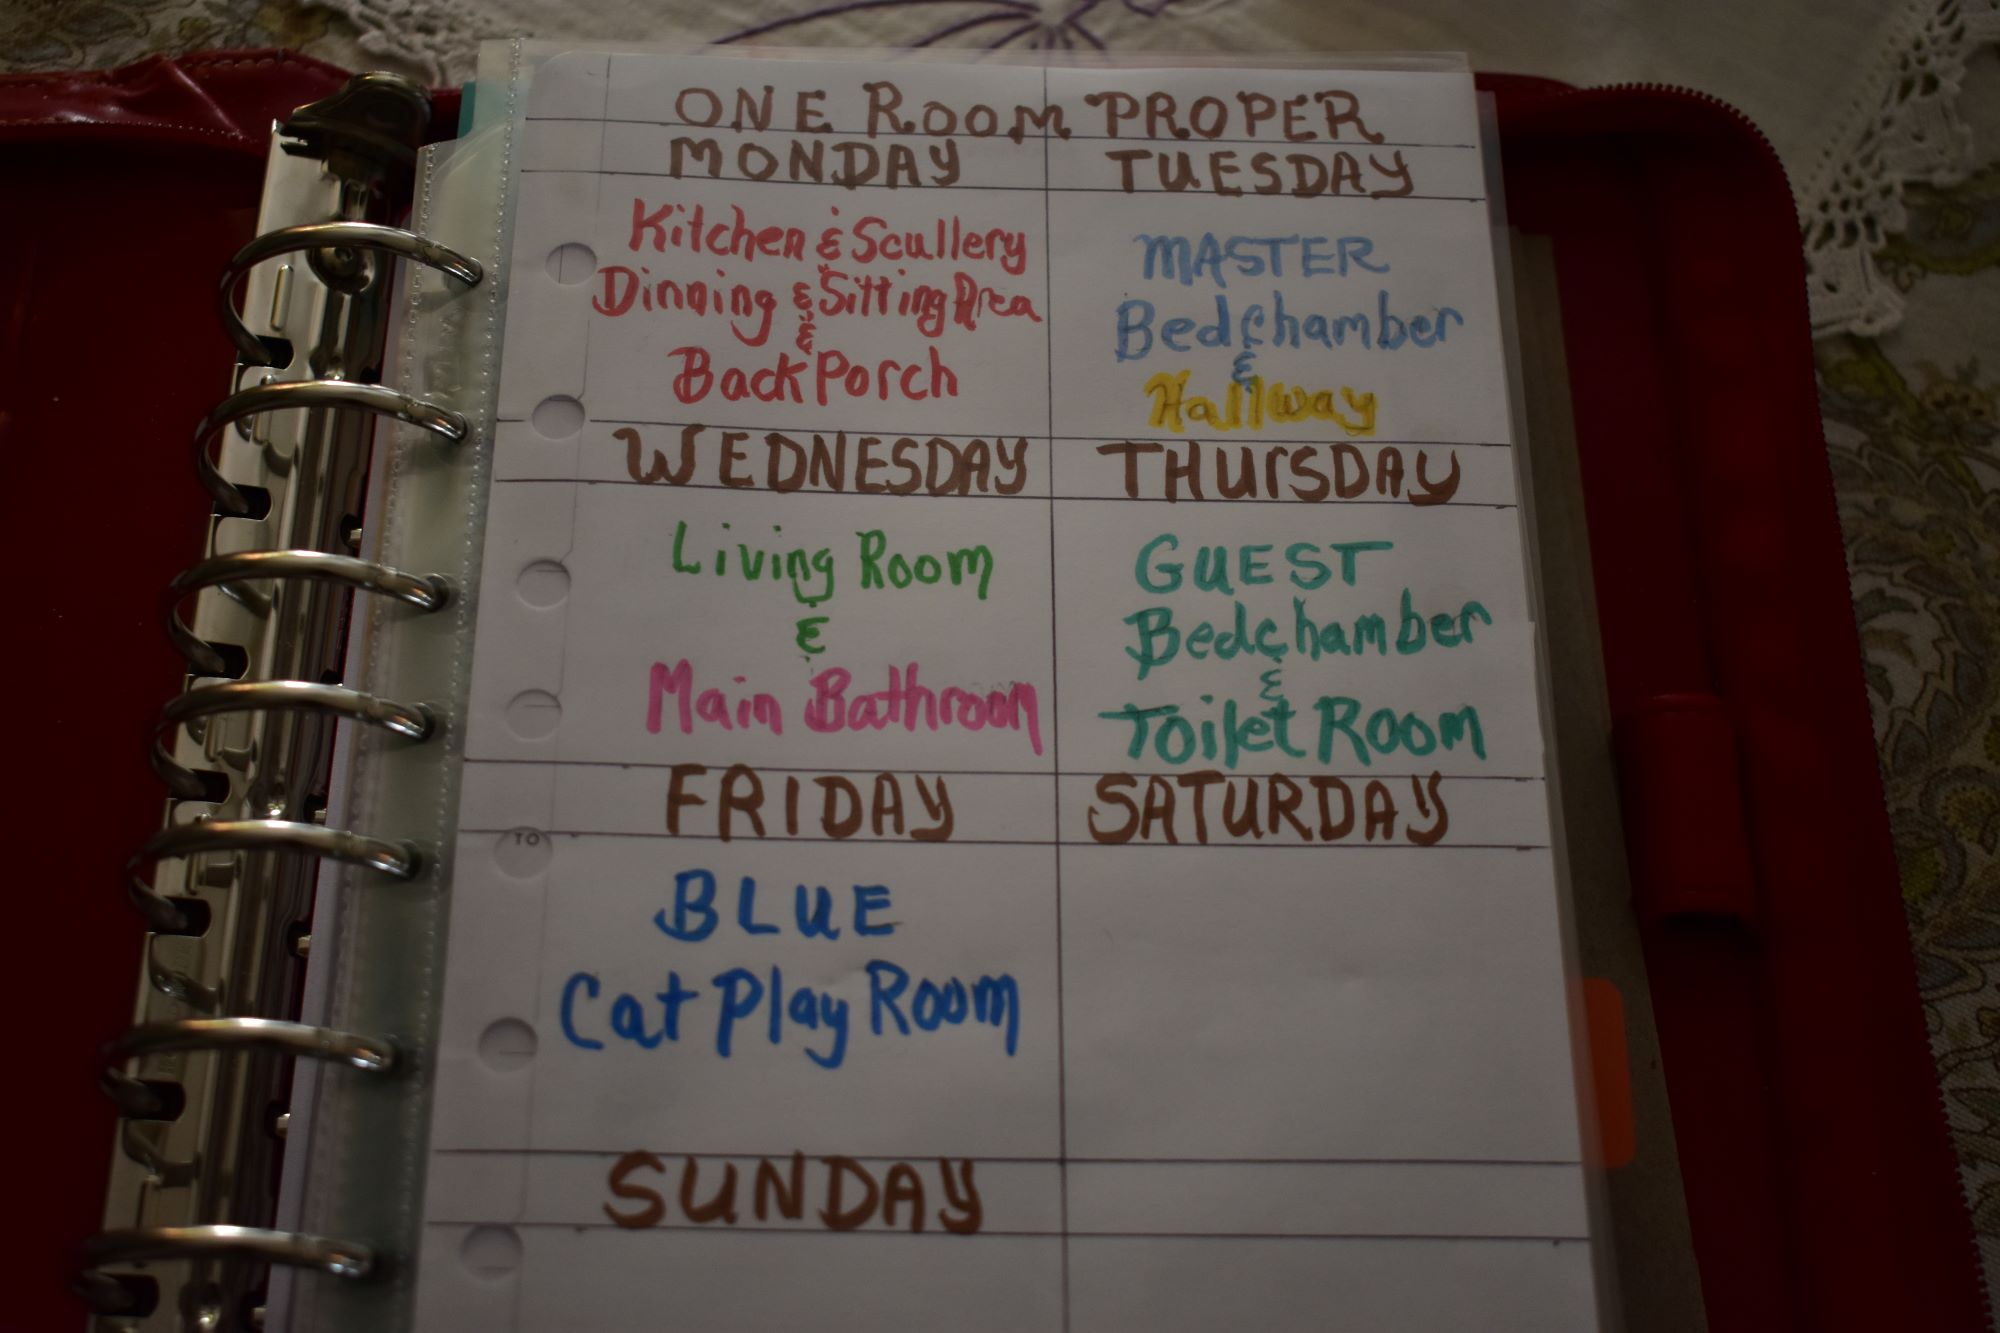 ONE ROOM PROPER
MONDAY
Kitchen & Scullery
Dinning & Sitting Area
&
Back Porch
TUESDAY
MASTER
Bedchamber
&
Hallway
WEDNESDAY
Living Room
&
Main Bathroom
THURSDAY
GUEST
Bedchamber
&
Toilet Room
FRIDAY
BLUE
Cat Play Room
SATURDAY
SUNDAY
TO